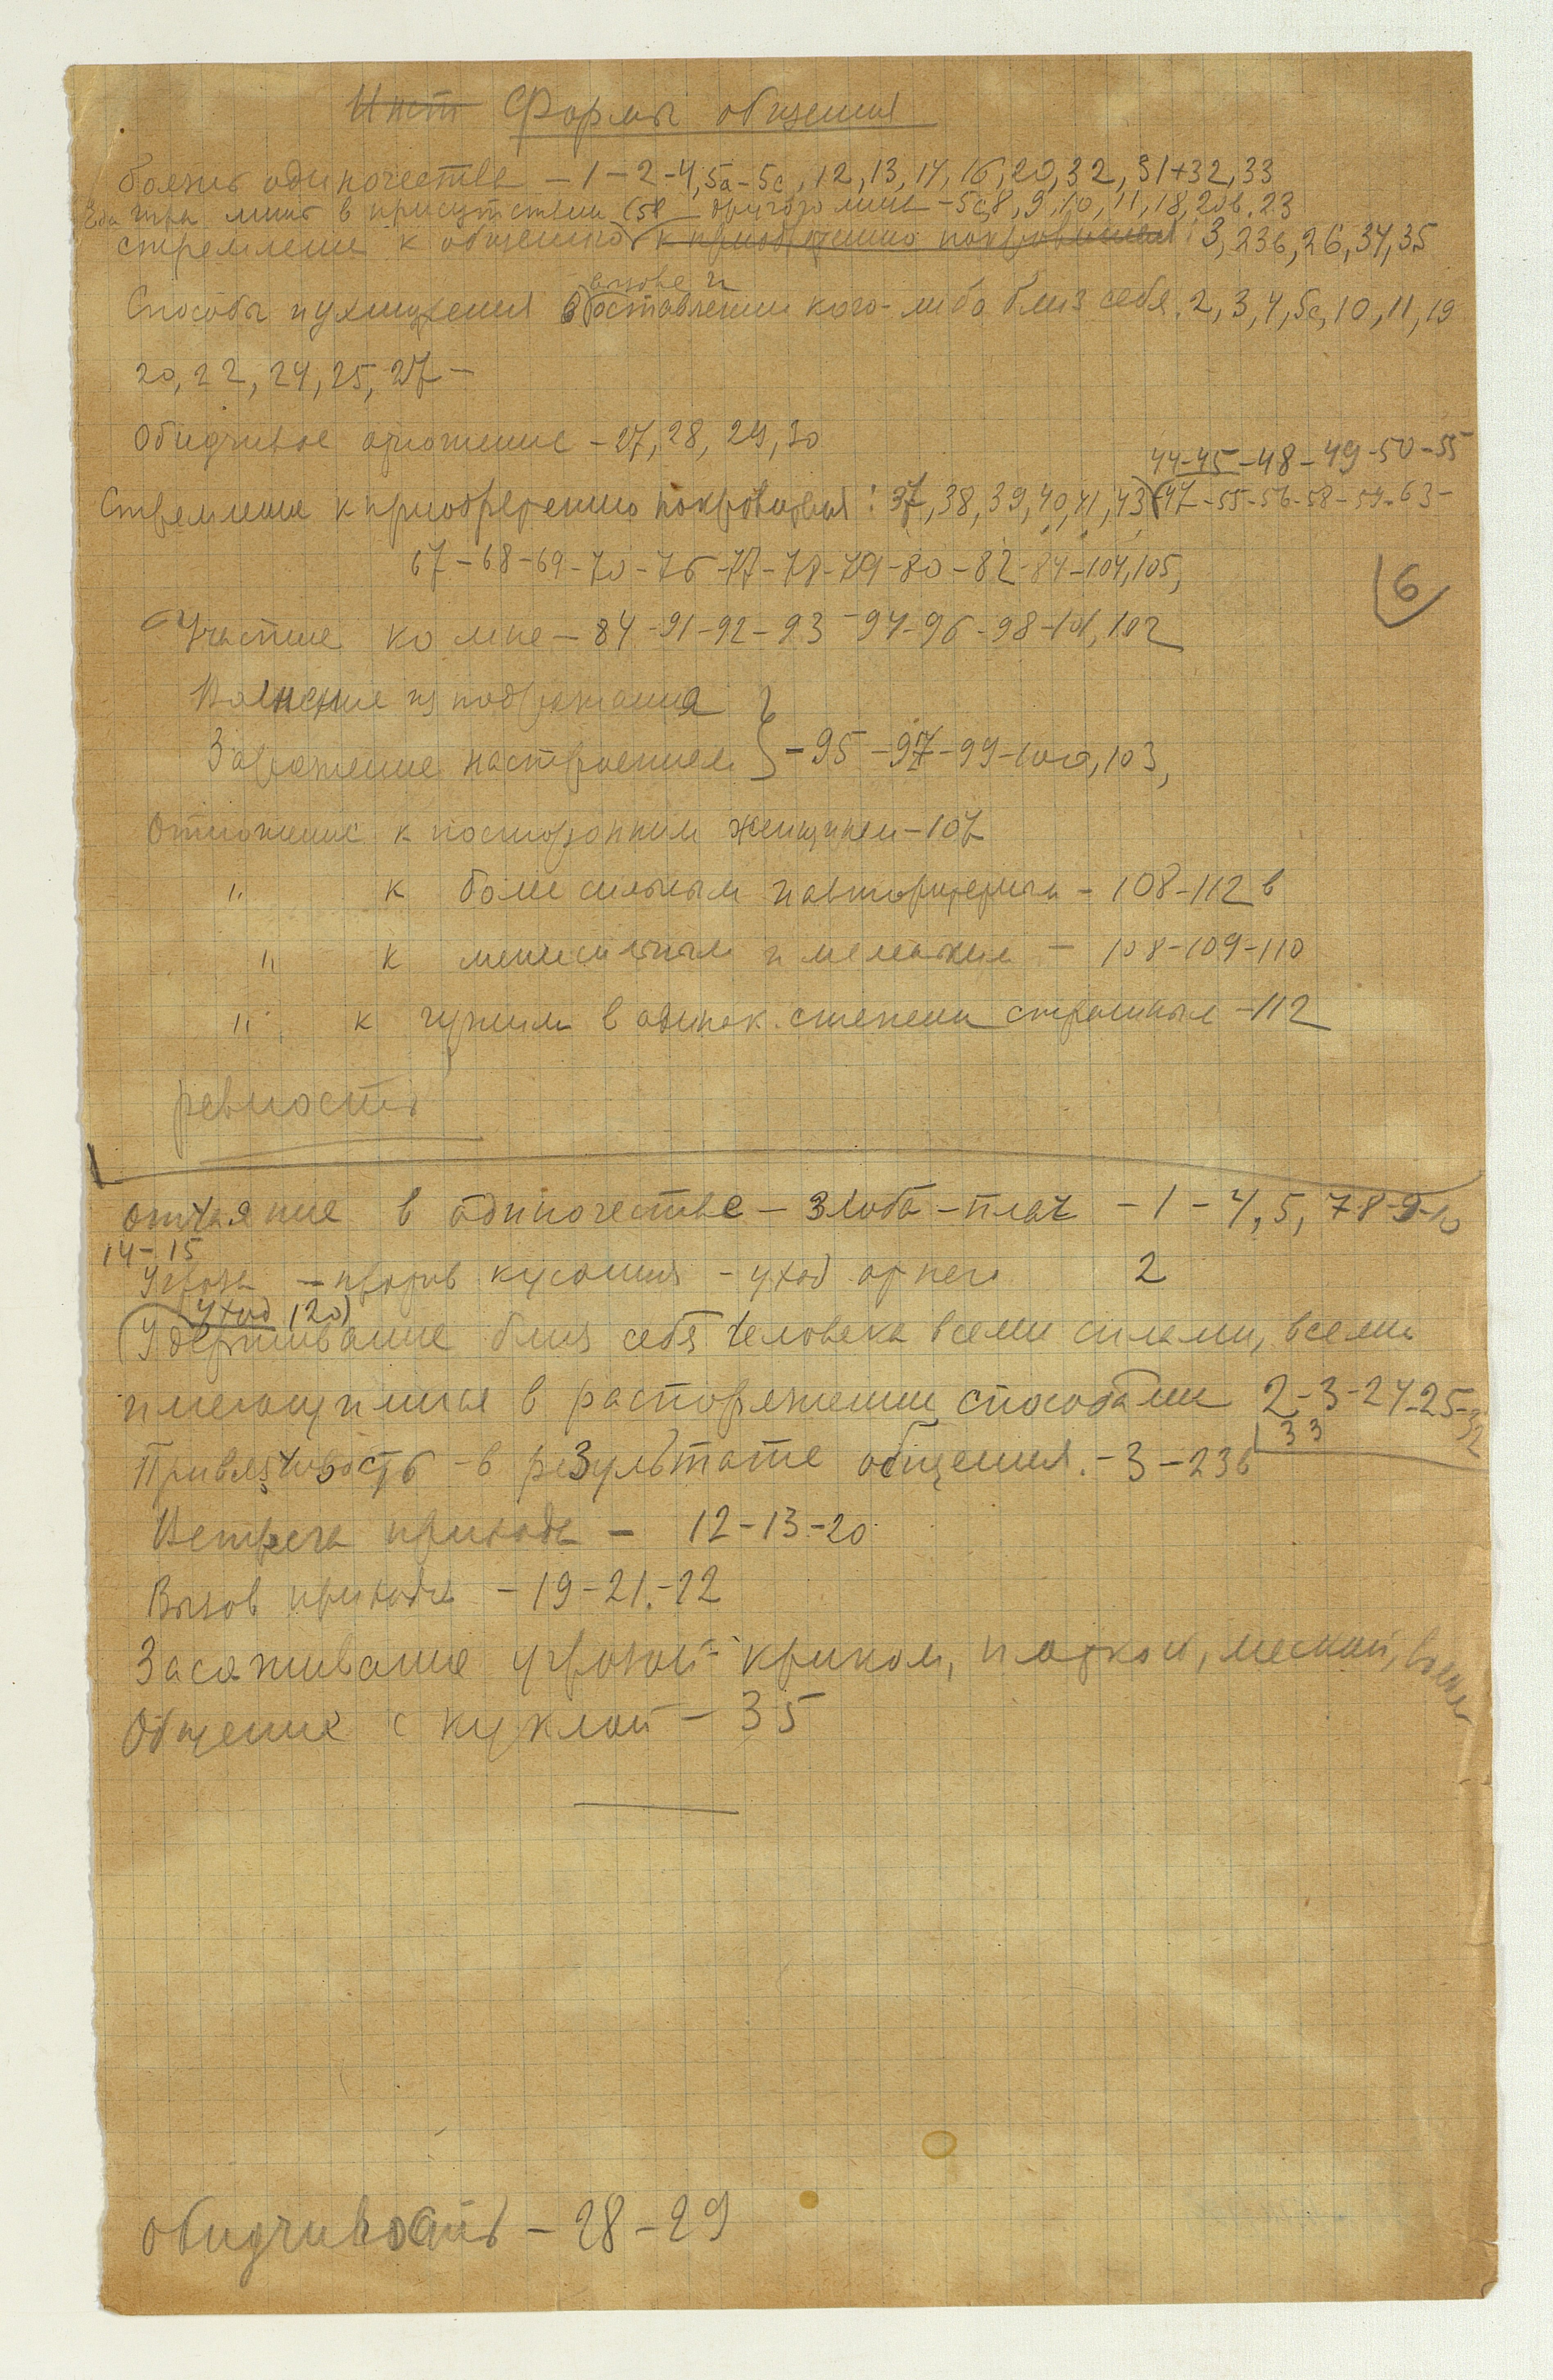 ~~Инст~~ Формы общения
Боязнь одиночества – 1 – 2 – 4, 5а – 5с, 12, 13, 14, 16, 20, 32, 31+32, 33
Еда лишь в присутствии (58 другого лица – 5с, 8, 9, 10, 11, 18, 20в, 23
стремление к общению ~~к приобретению покровителя~~ : 3, 23в, 26, 34, 35
вызове и
Способы ухищрения в оставлении кого-либо близ себя. 2, 3, 4, 5с, 10, 11, 19
20, 22, 24, 25, 27 –
Обидчивое отношение – 27, 28, 29, 30
44–45 – 48 – 49 – 50 – 55
Стремление к приобретению покровителя : 37, 38, 39, 40, 41, 43 (47 – 55 – 56 – 58 – 59 – 63 –
67 – 68 – 69 – 70 – 76 – 77 – 78 – 79 – 80 – 82 – 84 – 104, 105,
6
Участие ко мне – 84 – 91 – 92 – 93 – 94 – 96 – 98 – 101, 102
Волнение из подражания
Заражение настроением } – 95 – 97 – 99 – 100, 103,
Отношение к посторонним женщинам – 107
" к более сильным и авторитетным – 108 – 112 в
" к менее сильным и меньшим – 108 – 109 – 110
" к чужим в одинак. степени страшным – 112
ревность
Отчаяние в одиночестве – злоба – плач – 1 – 4, 5, 7 8 – 9 – 10
14 – 15
Угроза – кусания – уход от него 2
уход (20)
(Удерживание близ себя человека всеми силами, всеми
имеющимися в распоряжении способами 2 – 3 – 24 – 25 – 32
33
Привязчивость – в результате общения. – 3 – 23в
Встреча прихода – 12 – 13 – 20
Вызов прихода – 19 – 21 – 22
Засаживание угрозой – криком, палкой, маской,
Общение с куклой – 35
обидчивость – 28 – 29